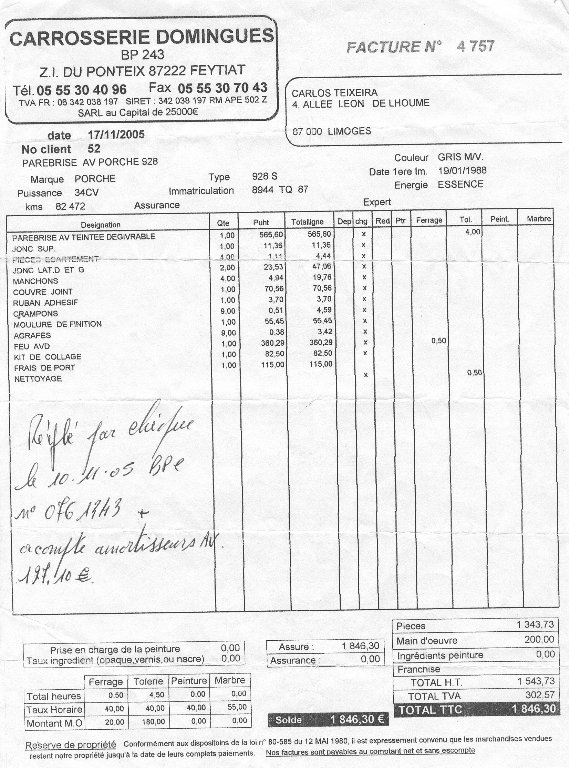 CARROSSERIE DOMINGUES
BP 243
Z.I. DU PONTEIX 87222 FEYTIAT
Tél. 05 55 30 40 96 Fax 05 55 30 70 43
TVA FR : 06 342 038 197 SIRET : 342 038 197 RM APE 502 Z
SARL au Capital de 25000€
FACTURE N° 4 757
CARLOS TEIXEIRA
4. ALLEE LEON DE LHOUME
87 000 LIMOGES
date 17/11/2005
No client 52
PAREBRISE AV PORCHE 928
Couleur GRIS M/V.
Marque PORCHE Type 928 S Date 1ere Im. 19/01/1988
Puissance 34CV Immatriculation 8944 TQ 87 Energie ESSENCE
kms 82 472 Assurance Expert
Designation Qte Puht Totalligne Dep chg Red Ptr Ferrage Tol. Peint. Marbre
PAREBRISE AV TEINTEE DEGIVRABLE 1,00 565,60 565,60 x 4,00
JONC SUP. 1,00 11,36 11,36 x
PIECES ECARTEMENT 4,00 1,11 4,44 x
JONC LAT.D ET G 2,00 23,53 47,06 x
MANCHONS 4,00 4,94 19,76 x
COUVRE JOINT 1,00 70,56 70,56 x
RUBAN ADHESIF 1,00 3,70 3,70 x
CRAMPONS 9,00 0,51 4,59 x
MOULURE DE FINITION 1,00 55,45 55,45 x
AGRAFES 9,00 0,38 3,42 x
FEU AVD 1,00 360,29 360,29 x 0,50
KIT DE COLLAGE 1,00 82,50 82,50 x
FRAIS DE PORT 1,00 115,00 115,00
NETTOYAGE x 0,50
Réglé par chèque
le 10.11.05 BPC
n° 0761243 +
acompte amortisseurs AV.
197,10 €
Prise en charge de la peinture 0,00
Taux ingredient (opaque,vernis,ou nacre) 0,00
Ferrage Tolerie Peinture Marbre
Total heures 0,50 4,50 0,00 0,00
Taux Horaire 40,00 40,00 40,00 55,00
Montant M.O 20,00 180,00 0,00 0,00
Assure : 1 846,30
Assurance : 0,00
Solde 1 846,30 €
Pieces 1 343,73
Main d'oeuvre 200,00
Ingrédients peinture 0,00
Franchise
TOTAL H.T. 1 543,73
TOTAL TVA 302,57
TOTAL TTC 1 846,30
Reserve de propriété Conformément aux dispositoins de la loi n° 80-585 du 12 MAI 1980, il est expressement convenu que les marchandises vendues
restent notre propriété jusqu'à la date de leurs complets paiements. Nos factures sont payables au comptant net et sans escompte